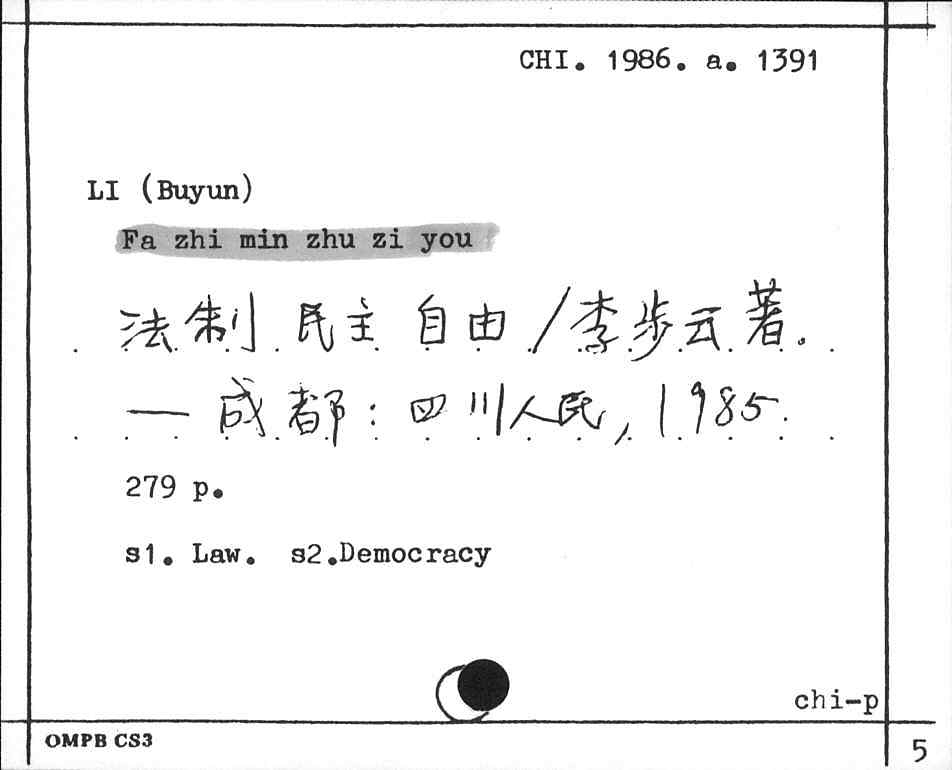 CHI. 1986. a. 1391
LI (Buyun)
Fa zhi min zhu zi you
法制 民主 自由 / 李步云著。
— 成都: 四川人民, 1985.
279 p.
s1. Law. s2.Democracy
chi-p
OMPB CS3
5